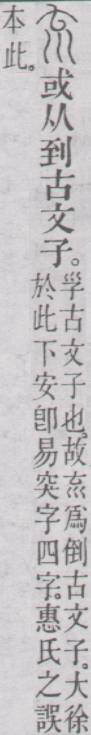 㐬或从到古文子。
㜽古文子也。故㐬爲倒古文子。大徐
於此下安卽易突字四字。惠氏之誤
本此。